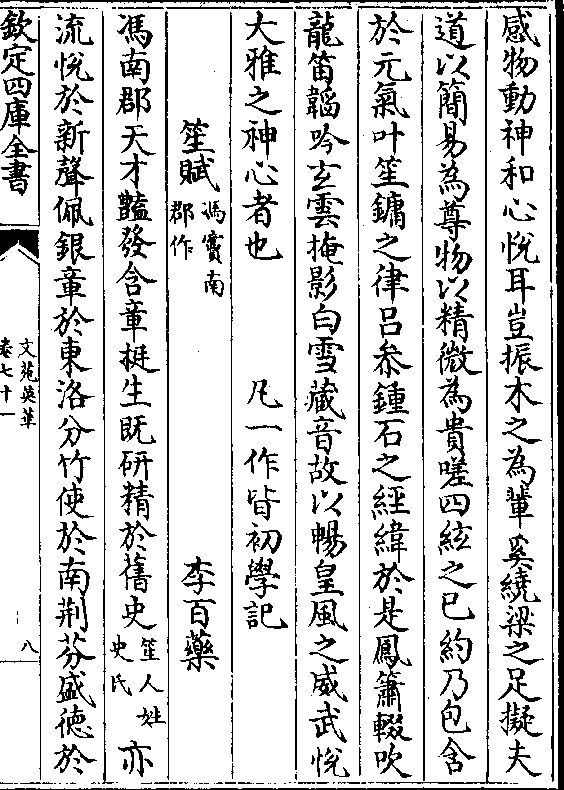 感物動神和心悅耳豈振木之為輩奚繞梁之足擬夫
道以簡易為尊物以精微為貴嗟四絃之已約乃包含
於元氣叶笙鏞之律呂叅鍾石之經緯於是鳳簫輟吹
龍笛韜吟玄雲掩影白雪藏音故以暢皇風之威武悅
大雅之神心者也 凡一作皆初學記
笙賦 馮竇南郡作 李百藥
馮南郡天才豔發含章挺生既研精於舊史 笙人姓史氏 亦
流悅於新聲佩銀章於東洛分竹使於南荆芬盛德於
欽定四庫全書
文苑英華
卷七十一
八